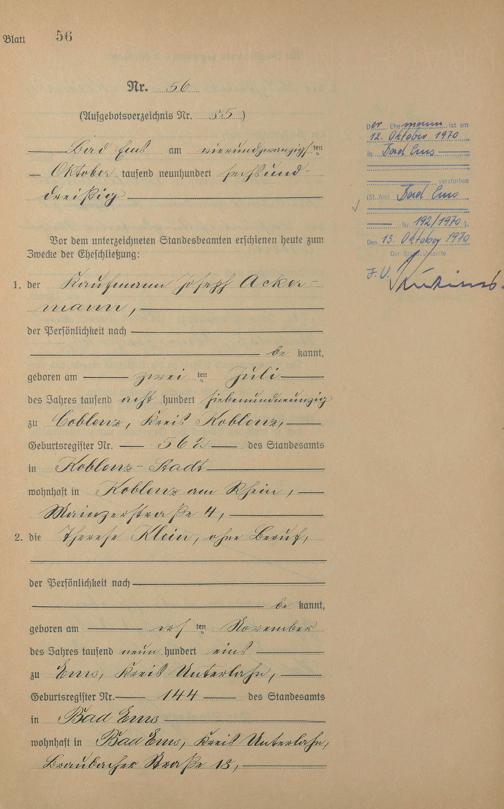 Blatt 56
Nr. 56
(Aufgebotsverzeichnis Nr. 55)
Bad Ems am vierundzwanzigsten
Oktober tausend neunhundert sechsund-
dreißig
Vor dem unterzeichneten Standesbeamten erschienen heute zum
Zwecke der Eheschließung:
1. der Kaufmann Joseph Acker-
mann,
der Persönlichkeit nach
be kannt,
geboren am zwei ten Juli
des Jahres tausend acht hundert siebenundneunzig
zu Coblenz, Kreis Koblenz,
Geburtsregister Nr. 562 des Standesamts
in Koblenz-Stadt
wohnhaft in Koblenz am Rhein,
Mainzerstraße 4,
2. die Therese Klein, ohne Beruf,
der Persönlichkeit nach
be kannt,
geboren am ers ten November
des Jahres tausend neun hundert eins
zu Ems, Kreis Unterlahn,
Geburtsregister Nr. 144 des Standesamts
in Bad Ems
wohnhaft in Bad Ems, Kreis Unterlahn,
Braubacher Straße 13,
Der Ehemann ist am
12. Oktober 1970
in Bad Ems
verstorben
(St. Amt Bad Ems
Nr. 192/1970).
Den 13. Oktober 1970
Der Standesbeamte
J. V.